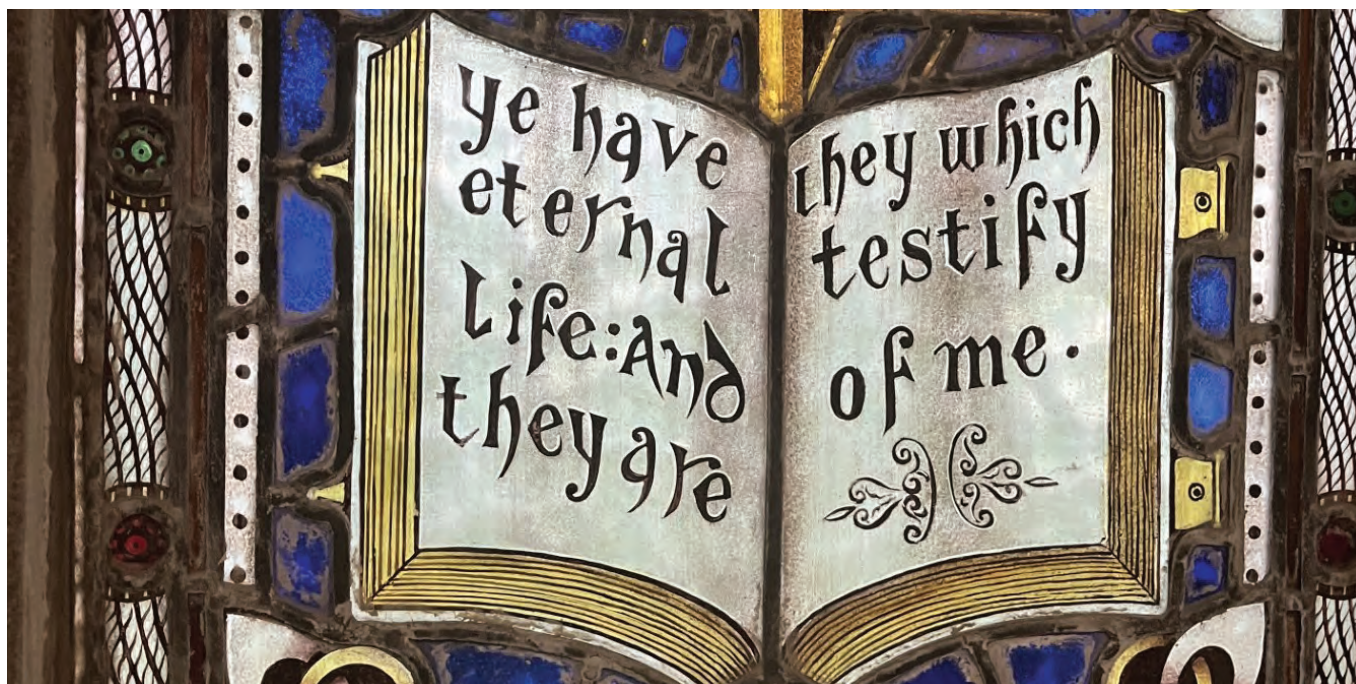 ye have
eternal
life:And
they are
they which
testify
of me.